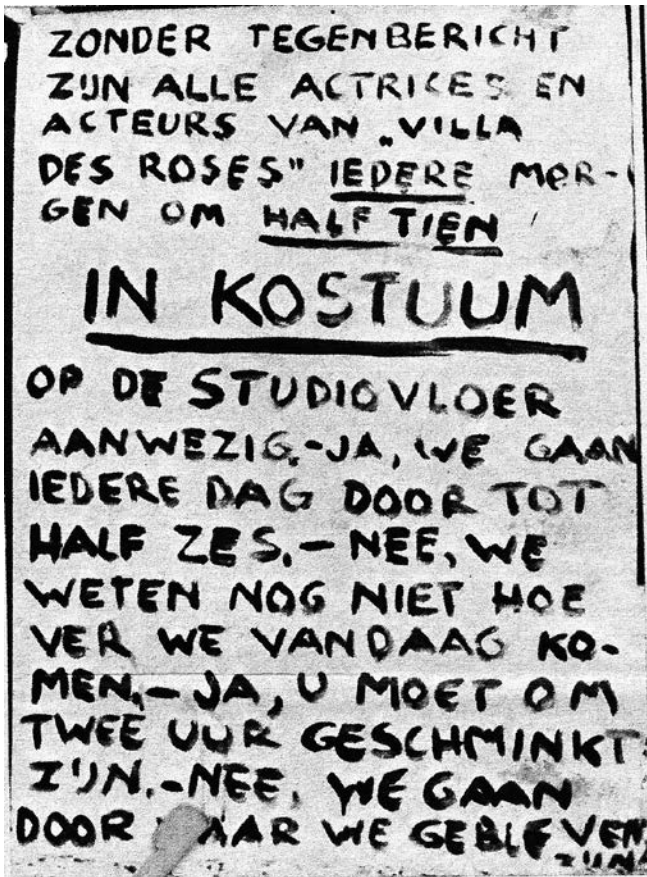 ZONDER TEGENBERICHT
ZIJN ALLE ACTRICES EN
ACTEURS VAN „VILLA
DES ROSES" IEDERE MOR-
GEN OM HALF TIEN
IN KOSTUUM
OP DE STUDIOVLOER
AANWEZIG.-JA, WE GAAN
IEDERE DAG DOOR TOT
HALF ZES.- NEE, WE
WETEN NOG NIET HOE
VER WE VANDAAG KO-
MEN.- JA, U MOET OM
TWEE UUR GESCHMINKT
ZIJN.-NEE, WE GAAN
DOOR WAAR WE GEBLEVEN
ZIJN